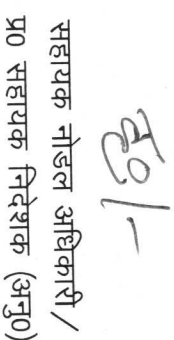 ह0/-
सहायक नोडल अधिकारी /
प्र0 सहायक निदेशक (अनु0)